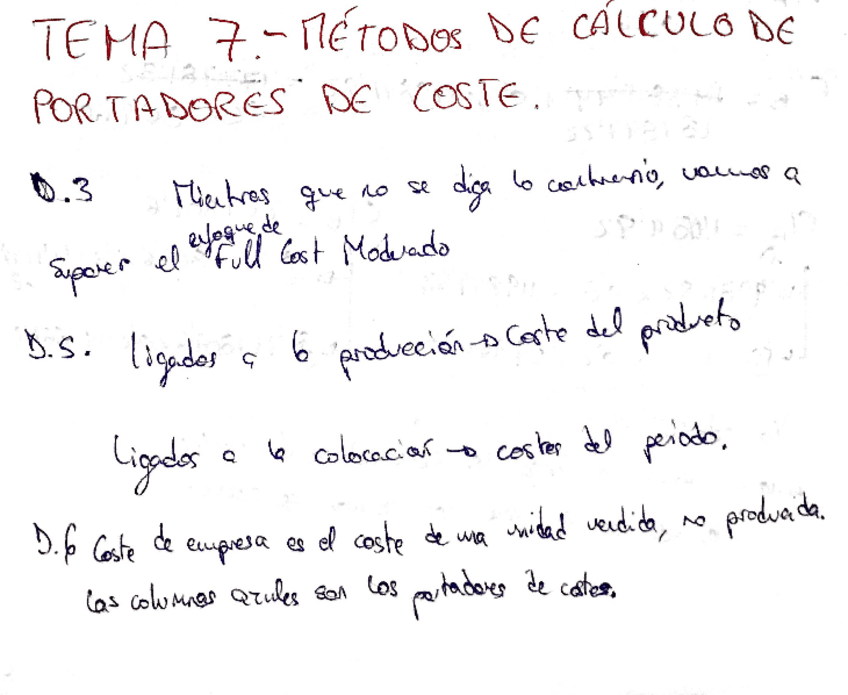 TEMA 7.- MÉTODOS DE CÁLCULO DE
PORTADORES DE COSTE.
D.3 Mientras que no se diga lo contrario, vamos a
suponer el enfoque de Full Cost Moderado
D.5. ligados a la producción → Coste del producto
Ligados a la colocación → costes del periodo.
D.6 Coste de empresa es el coste de una unidad vendida, no producida.
Las columnas azules son los portadores de costes.